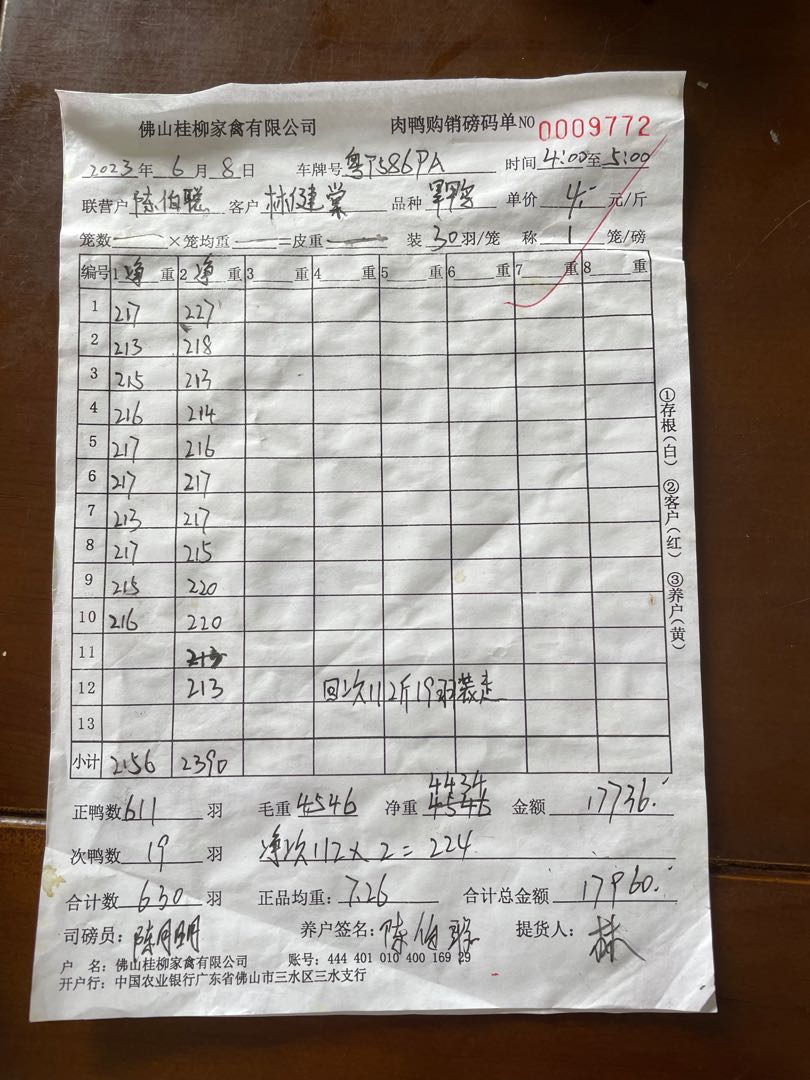 佛山桂柳家禽有限公司 肉鸭购销磅码单 NO 0009772
2023年 6月 8日 车牌号 时间 4:00至5:00
联营户 陈伯聪 客户 林健棠 品种 单价 4.- 元/斤
笼数 — ×笼均重 — =皮重 — 装 30 羽/笼 称 1 笼/磅
编号 1 净 重 2 净 重 3 重 4 重 5 重 6 重 7 重 8 重
1 217 227
2 213 218
3 215 213
4 216 214
5 217 216
6 217 217
7 213 217
8 217 215
9 215 220
10 216 220
11 213
12 213 回次112斤19羽装走
13
小计 2156 2390
正鸭数 611 羽 毛重 4546 净重 4546 4434 金额 17736.-
次鸭数 19 羽 净次112×2=224
合计数 630 羽 正品均重: 7.26 合计总金额 17960.-
司磅员: 陈月明 养户签名: 陈伯聪 提货人: 林
户 名: 佛山桂柳家禽有限公司 账号: 444 401 010 400 169 29
开户行: 中国农业银行广东省佛山市三水区三水支行
①存根(白) ②客户(红) ③养户(黄)